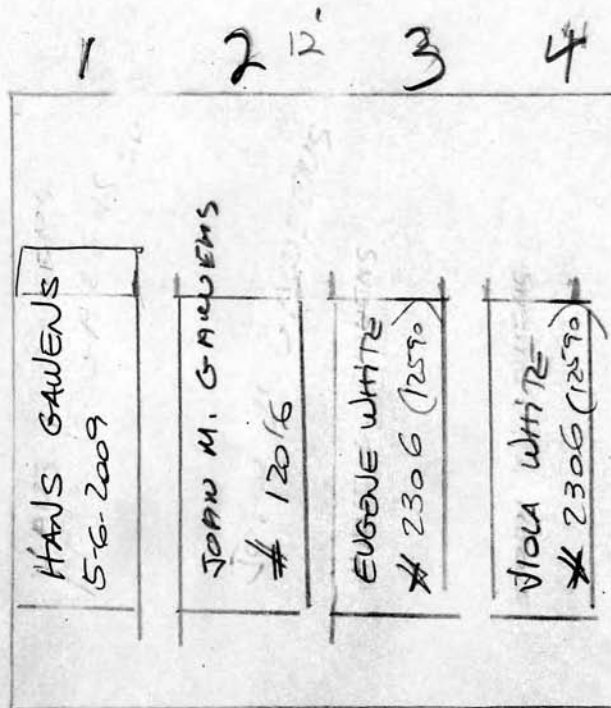 1 2 12' 3 4
HANS GAWENS
5-6-2009
JOAN M. GAWENS
# 12016
EUGENE WHITE
# 2306 (12590)
VIOLA WHITE
# 2306 (12590)